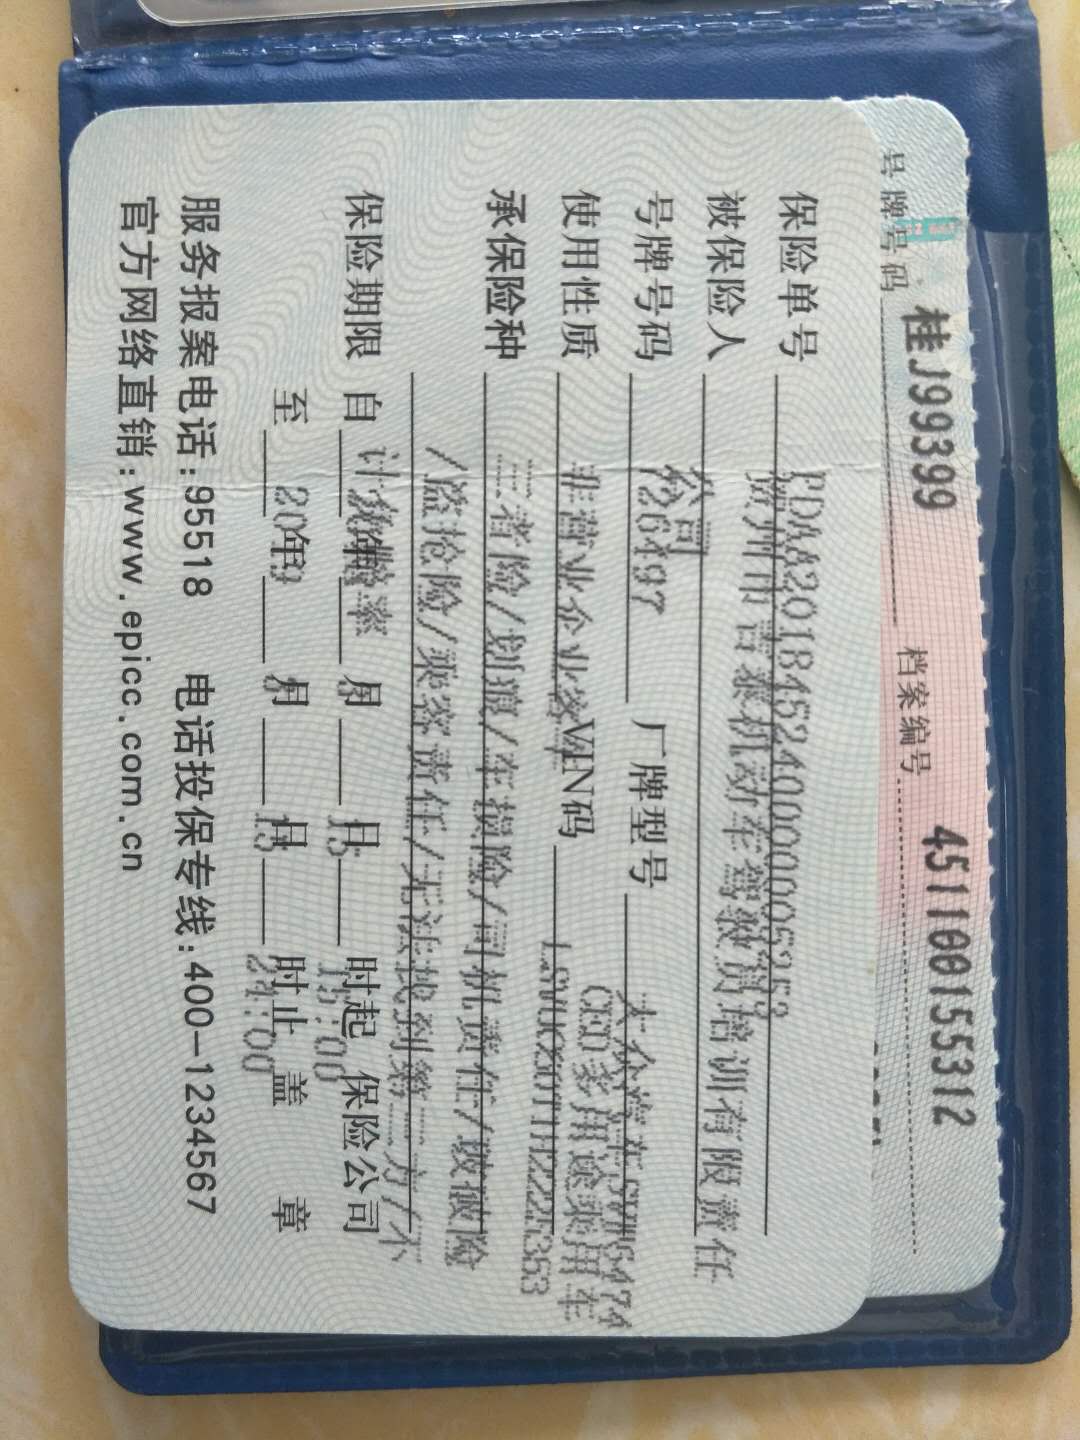 号牌号码 桂J99399 档案编号 451100155312
保险单号 PDAA201845240000005263
被保险人 贺州市吉泰机动车驾驶员培训有限责任
公司
号牌号码 厂牌型号
大众汽车SVW6474
多用途乘用车
使用性质 非营业企业客车 VIN码
承保险种 三者险/划痕/车损险/司机责任/玻璃险
/盗抢险/乘客责任/无法找到第三方/不
计免赔率
保险期限 自 月 15 日 15:00 时起 保险公司
至 年 月 15 日 24:00 时止 盖 章
服务报案电话:95518 电话投保专线:400-1234567
官方网络直销:www.epicc.com.cn